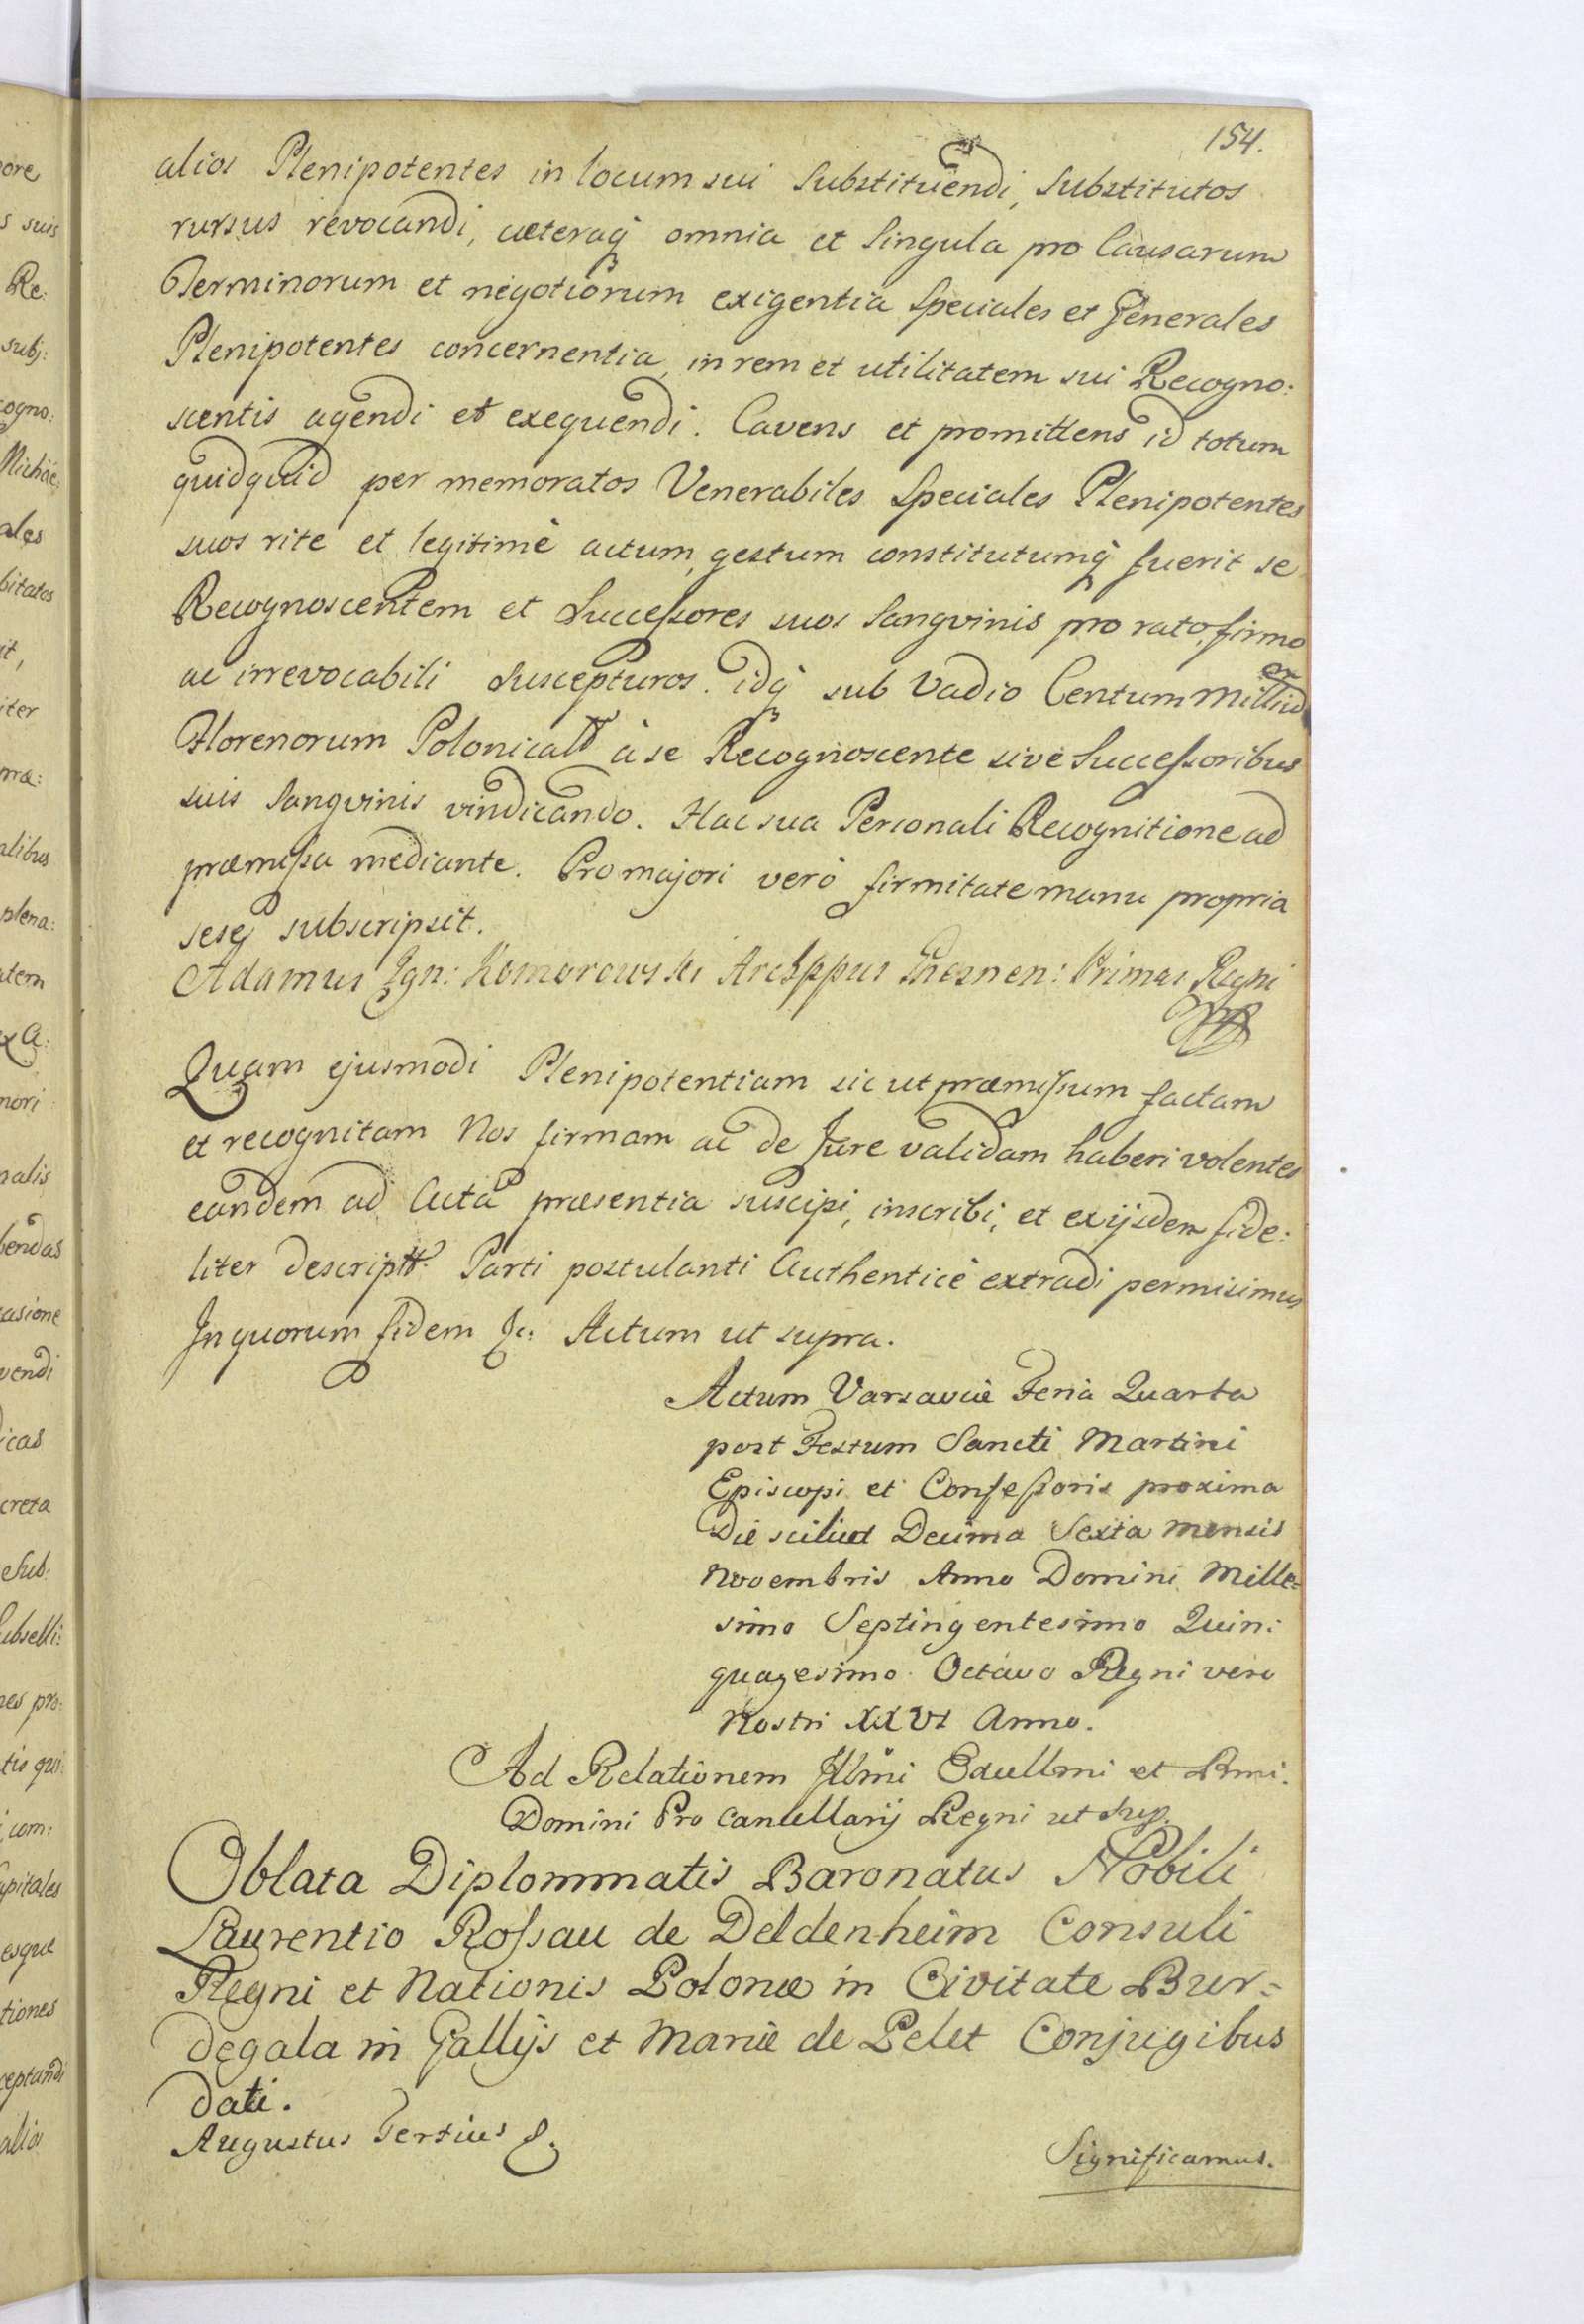 154.
alios Plenipotentes in locum sui Substituendi, Substitutos
rursus revocandi, cæteraq̃ omnia et Singula pro Causarum
Terminorum et negotiorum exigentia Speciales et Generales
Plenipotentes concernentia, in rem et utilitatem sui Recogno:
scentis agendi et exequendi. Cavens et promittens id totum
quidquid per memoratos Venerabiles Speciales Plenipotentes
suos rite et legitimè actum, gestum constitutumq̃ fuerit se
Recognoscentem et Successores suos Sangvinis pro rato, firmo
ac irrevocabili Suscepturos. idq̃ sub Vadio Centum Milliũ
Florenorum Polonicalium à se Recognoscente sive Successoribus
suis Sangvinis vindicando. Hac sua Personali Recognitione ad
præmissa mediante. Pro majori verò firmitate manu propria
seseq̃ subscripsit.
Adamus Ign: Komorowski Archppus Gnesnen: Primas Regni
Quam ejusmodi Plenipotentiam sic ut præmissum factam
et recognitam Nos firmam ac de Jure validam haberi volentes
eandem ad Acta præsentia suscipi, inscribi, et ex ijsdem fide:
liter descriptã Parti postulanti Authenticè extradi permisimus
In quorum fidem &c: Actum ut supra.
Actum Varsaviæ Feria Quarta
post Festum Sancti Martini
Episcopi et Confessoris proxima
Die scilicet Decima Sexta mensis
Novembris Anno Domini Mille=
simo Septingentesimo Quin:
quagesimo Octavo Regni vero
Nostri XXVI Anno.
Ad Relationem Illmi Excellmi et Rmi.
Domini Pro Cancellarij Regni ut sup.
Oblata Diplommatis Baronatus Nobili
Laurentio Rossau de Deldenheim Consuli
Regni et Nationis Polonæ in Civitate Bur=
degala in Gallijs et Mariæ de Pelet Conjugibus
dati.
Augustus Tertius &.
Significamus.
ore
s suis
Re:
subj:
cogno:
Michae
ales
bitatos
it,
iter
mæ:
alibus
plena:
atem
ex A:
nori
nalis
bendas
casione
vendi
icas
creta
Sub:
ubselli:
nes pro:
tis qui
com:
apitales
esque
tiones
ceptandi
alios